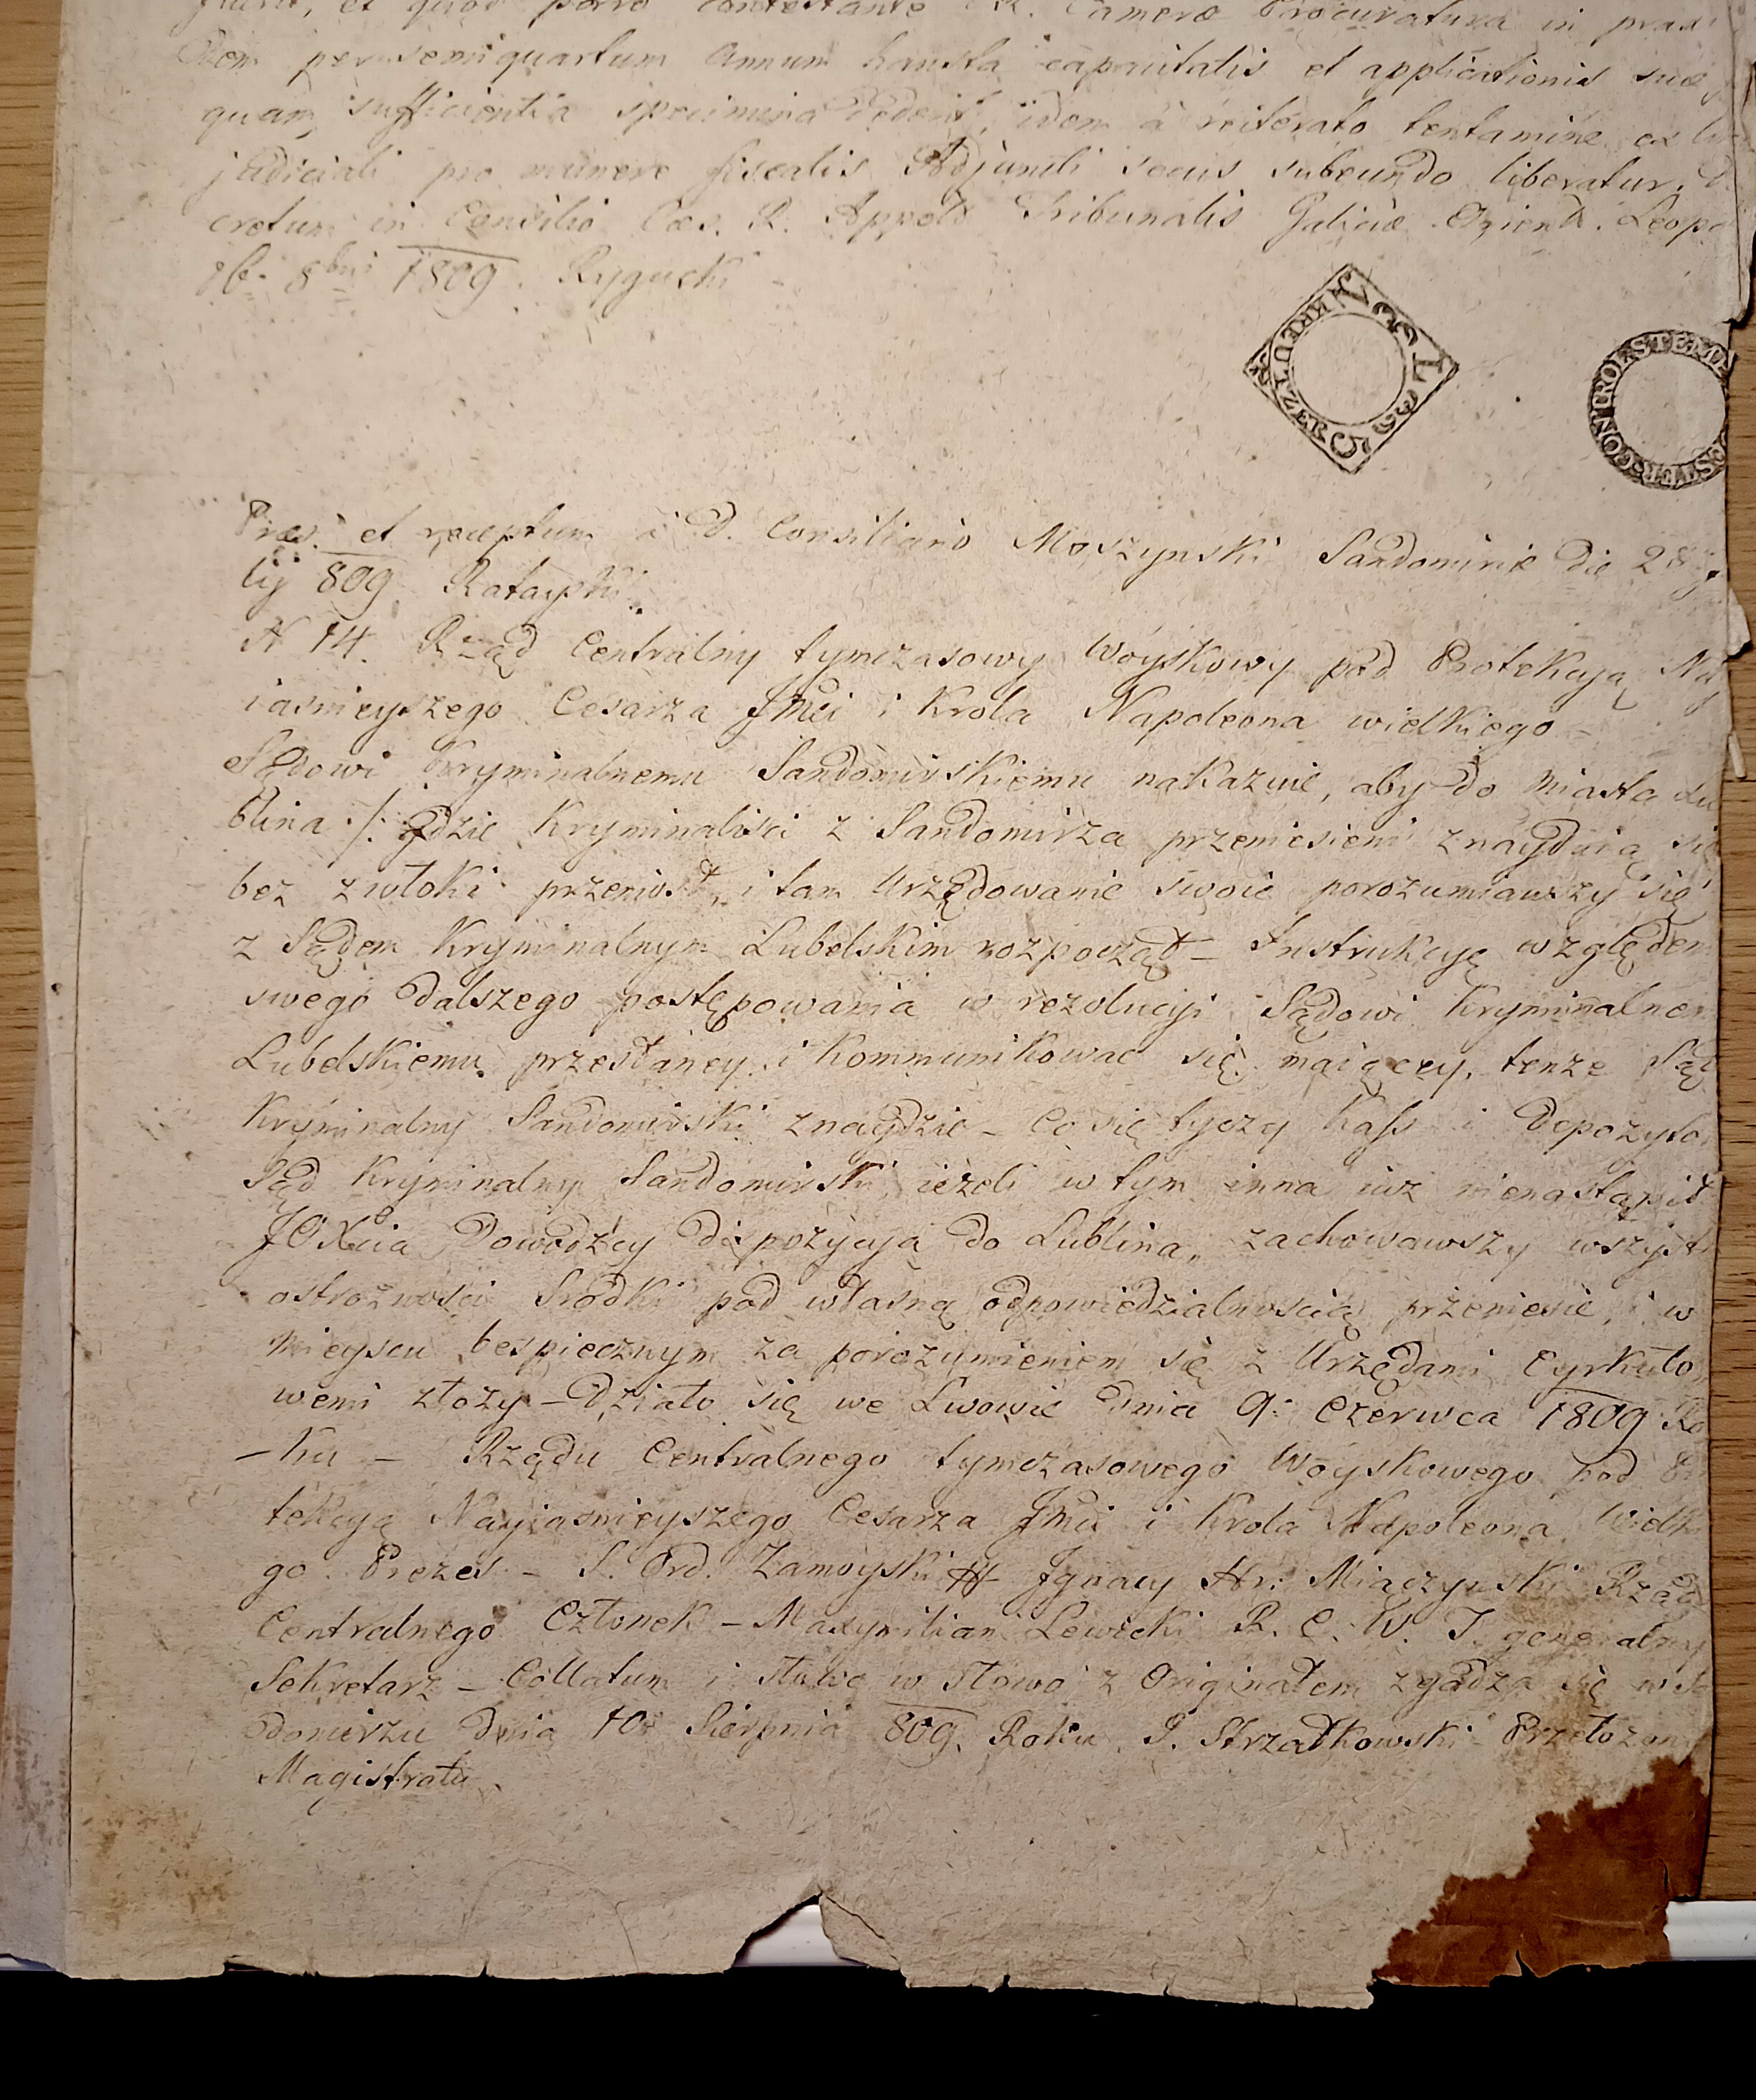 et quod porro contestante R. Camerae Procuratura in praxi
dem per semiquartum Annum hausta capacitatis et applicationis suae
quam sufficientia specimina dederit, idem à reiterato tentamine ex
judiciali pro munere fiscalis Adjuncti secus subeundo liberatur.
cretum in Consilio Caes. R. Appell. Tribunalis Galiciae Orient. Leopo
8bris 1809. Rygucki
KREUTZER
CONTROL STEM STER
Praes. et receptum à D. Consiliario Moszynski Sandomiriae die 28
lij 809. Ratayski
N 14. Rząd Centralny tymczasowy Woyskowy pod Protekcyą Nay
iasnieyszego Cesarza JMci i Krola Napoleona wielkiego –
Sądowi Kryminalnemu Sandomirskiemu nakazuie, aby do Miasta Lu
blina /: gdzie Kryminalisci z Sandomirza przeniesieni znayduią się
bez zwłoki przeniosł, i tam Urzędowanie swoie porozumiawszy się
z Sądem Kryminalnym Lubelskim rozpoczął – Instrukcyę względem
swego dalszego postępowania w rezolucyi Sądowi Kryminalnem
Lubelskiemu przesłaney i kommunikowac się maiącey, tenze Sąd
Kryminalny Sandomirski znaydzie – Co się tyczy Kass i Depozyto
Sąd Kryminalny Sandomirski ieżeli w tym inna iuz nienastąpił
JOXcia Dowodźcy dispozycya do Lublina, zachowawszy wszystk
ostrożności Srodki pod własną odpowiedzialnoscią przeniesie, i w
mieyscu bespiecznym za porozumieniem się z Urzędami Cyrkuło
wemi złoży – Działo się we Lwowie dnia 9. Czerwca 1809 Ro
–ku – Rządu Centralnego tymczasowego Woyskowego pod Pro
tekcyą Nayiasnieyszego Cesarza JMci i Krola Napoleona Wielki
go. Prezes – S. Ord. Zamoyski Ignacy Hr. Miączynski Rząd
Centralnego Członek – Maxymilian Lewicki R. C. W. T. generalny
Sekretarz – Collatum i słowo w słowo z Originałem zgadza się w
domirzu dnia 10 Sierpnia 809. Roku. P. Strzałkowski Przełożon
Magistratu